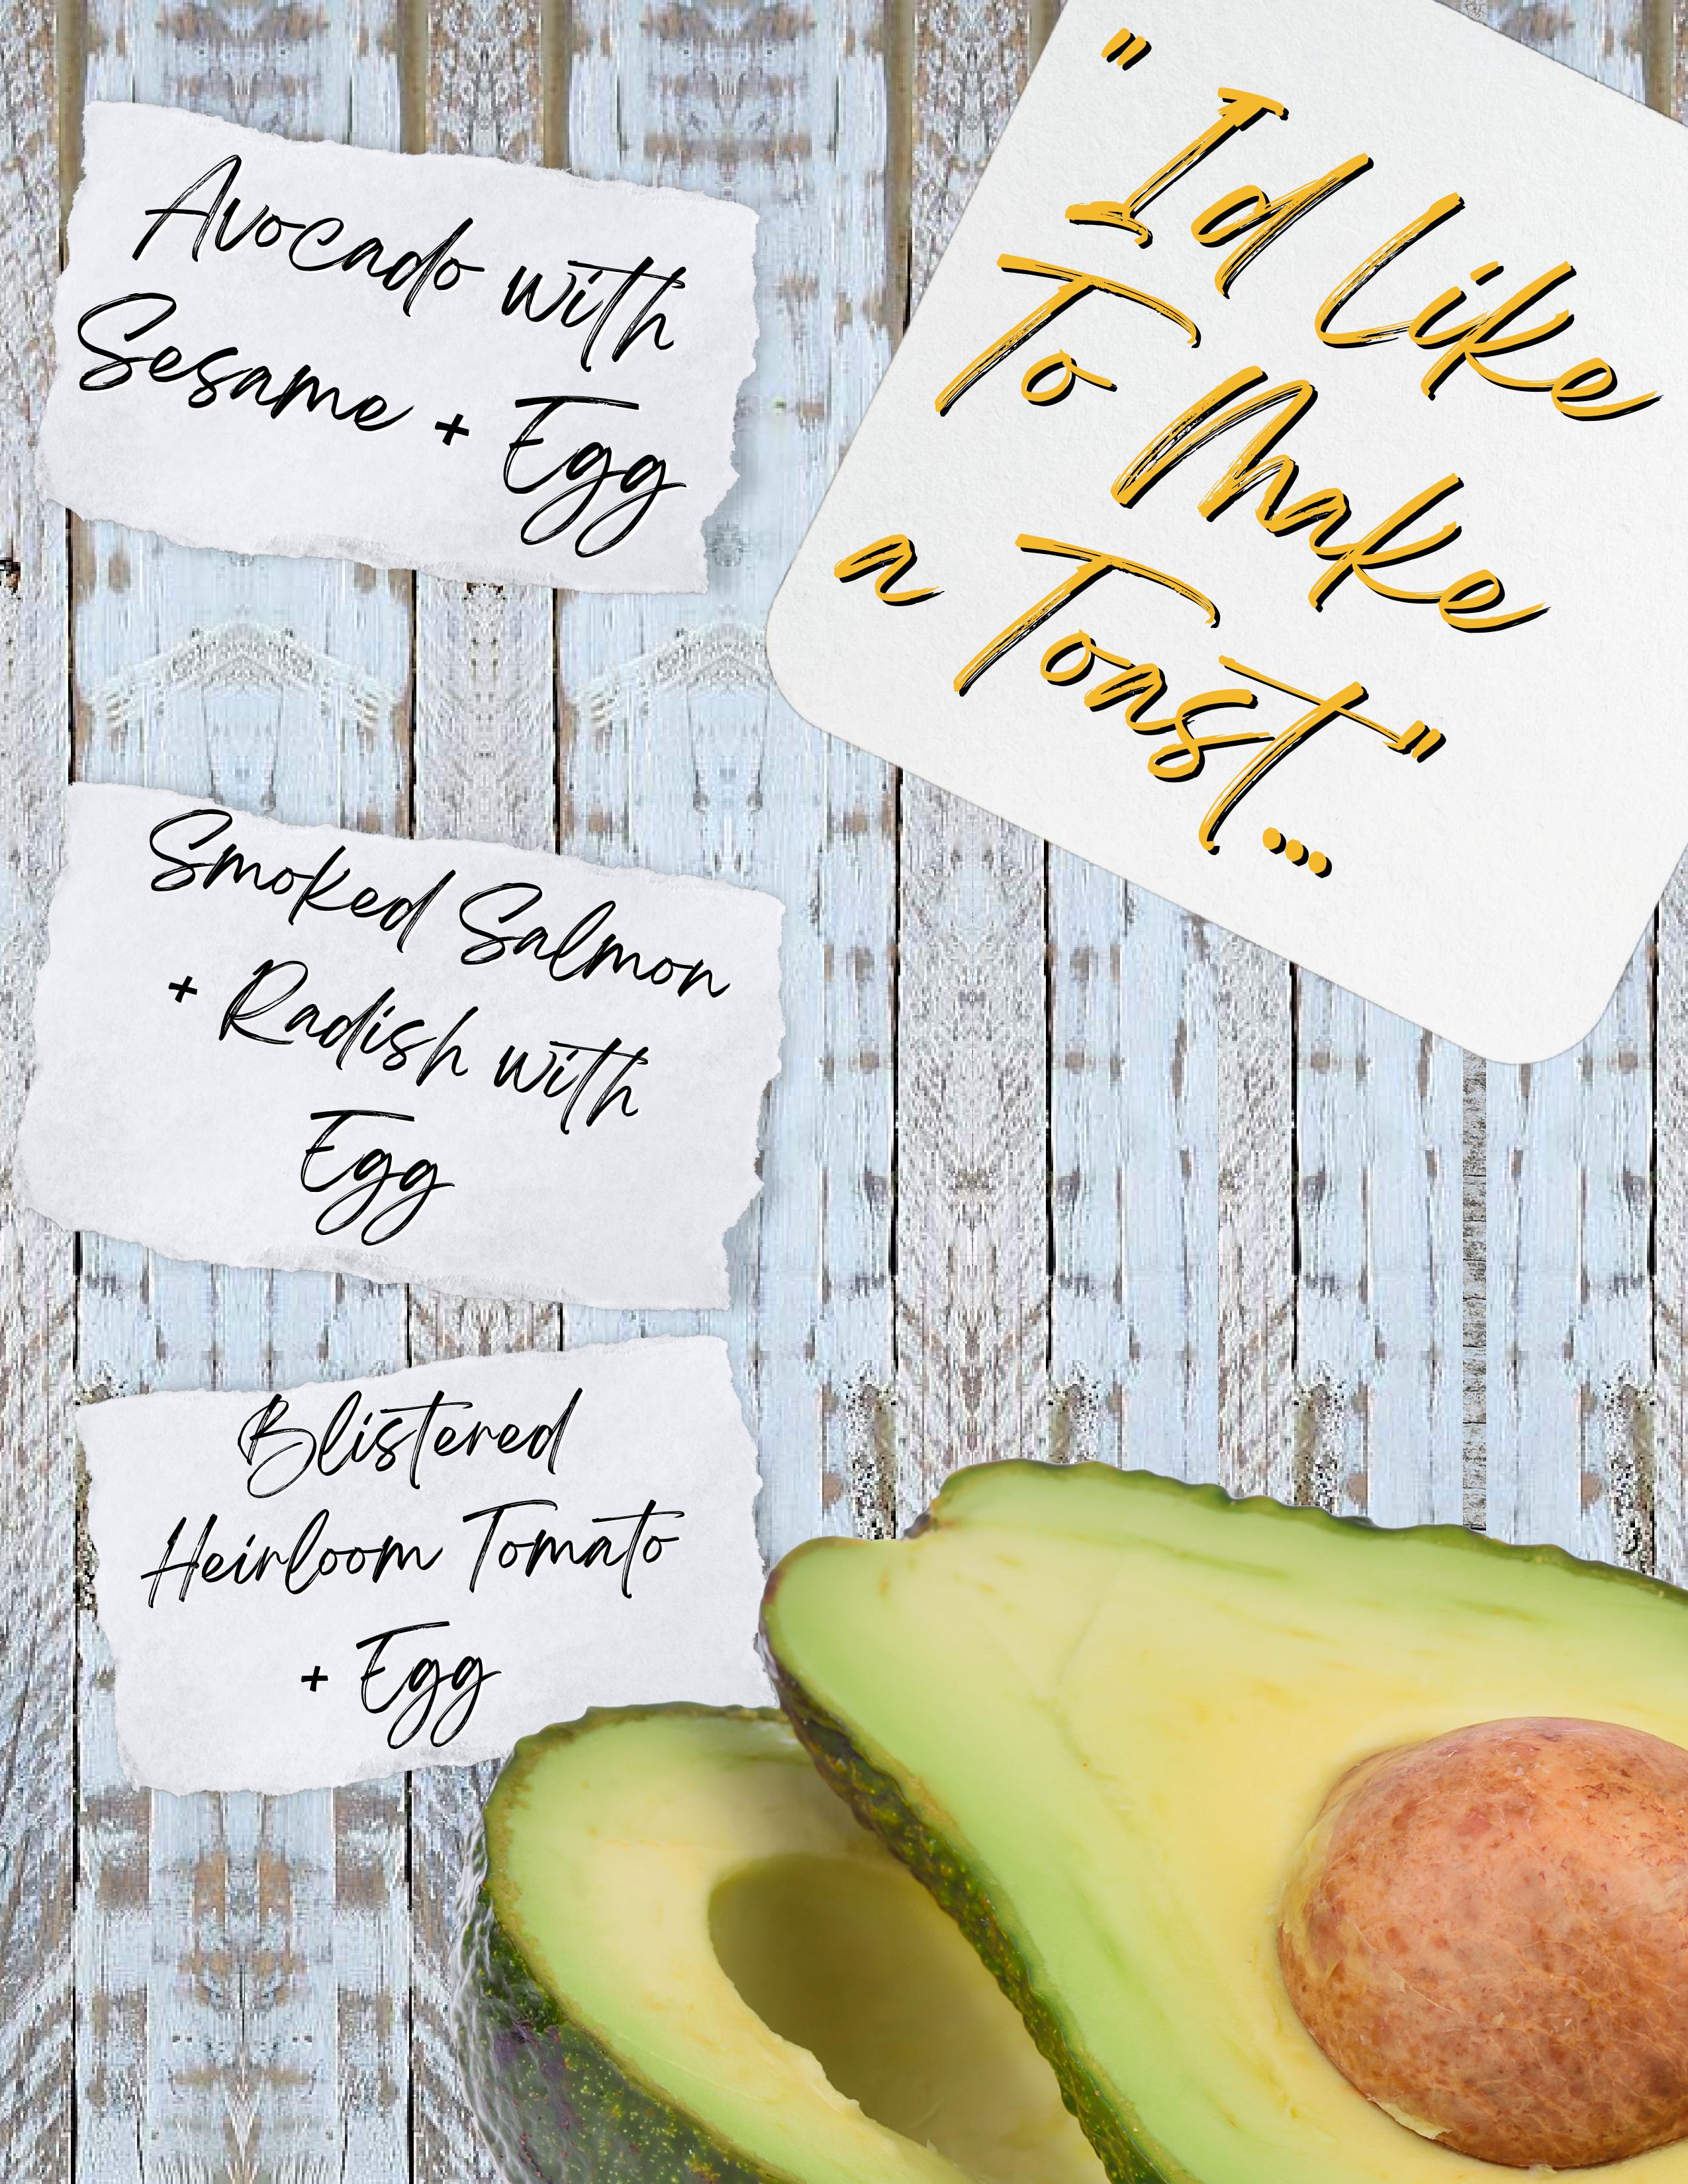 "Id Like
To Make
a Toast..."
Avocado with
Sesame + Egg
Smoked Salmon
+ Radish with
Egg
Blistered
Heirloom Tomato
+ Egg